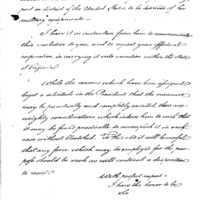 part or district of the United States, to be deprived of his
military equipments —
I have it in instruction from him to communicate
this resolution to you, and to request your effectual
cooperation, in carrying it into execution within the State
of Virginia.
While the reasons which have been assigned
beget a solicitude in the President that the measure
may be punctually and completely executed, there are
weighty considerations which induce him to wish that
it may be found practicable to accomplish it in each
case without bloodshed. To this end it will be useful
that any force which may be employed for the pur-
pose should be such as will controul a disposition
to resist.
With perfect respect
I have the honor to be
&c